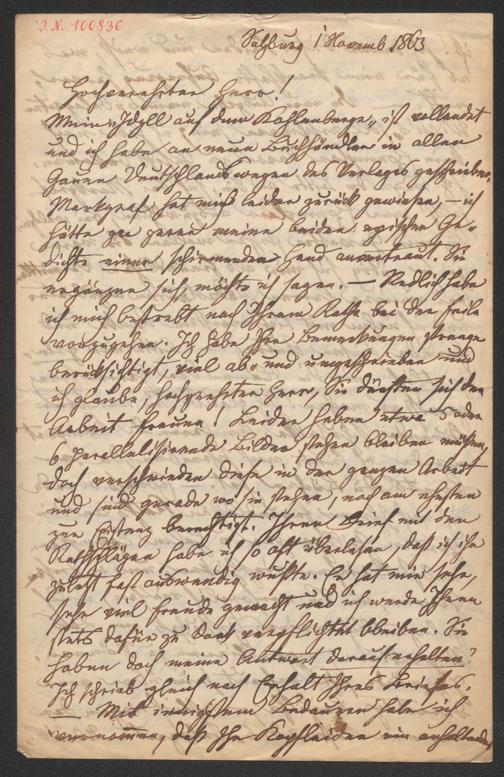 I.N. 100836
Salzburg 1 Novemb 1863
Hochverehrter Herr!
Mein „Idyll auf dem Kahlenberge" ist vollendet
und ich habe an neun Buchhändler in allen
Gauen Deutschlands wegen des Verlages geschrieben.
Markgraf hat mich leider zurück gewiesen, – ich
hätte gar gerne meine beiden epischen Ge-
dichte einer schirmenden Hand anvertraut. Sie
ergänzen sich, möchte ich sagen. – Redlich habe
ich mich bestrebt nach Ihrem Rathe bei der Feile
vorzugehen. Ich habe Ihre Bemerkungen strenge
berücksichtigt, viel ab- und umgeschrieben und
ich glaube, hochverehrter Herr, Sie dürften sich der
Arbeit freuen! Leider haben etwa 5 oder
6 parallelisirende Bilder stehen bleiben müssen,
doch verschwinden diese in der ganzen Arbeit
und sind gerade wo sie stehen, noch am ehesten
zur Existenz berechtigt. Ihren Brief mit den
Rathschlägen habe ich so oft überlesen, daß ich ihn
zuletzt fast auswendig wußte. Er hat mir sehr,
sehr viel Freude gemacht und ich werde Ihnen
stets dafür zu Dank verpflichtet bleiben. Sie
haben doch meine Antwort darauf erhalten?
Ich schrieb gleich nach Erhalt Ihres Briefes.
– Mit innigstem Bedauern habe ich
vernommen, daß Ihr Kopfleiden ein anhaltendes